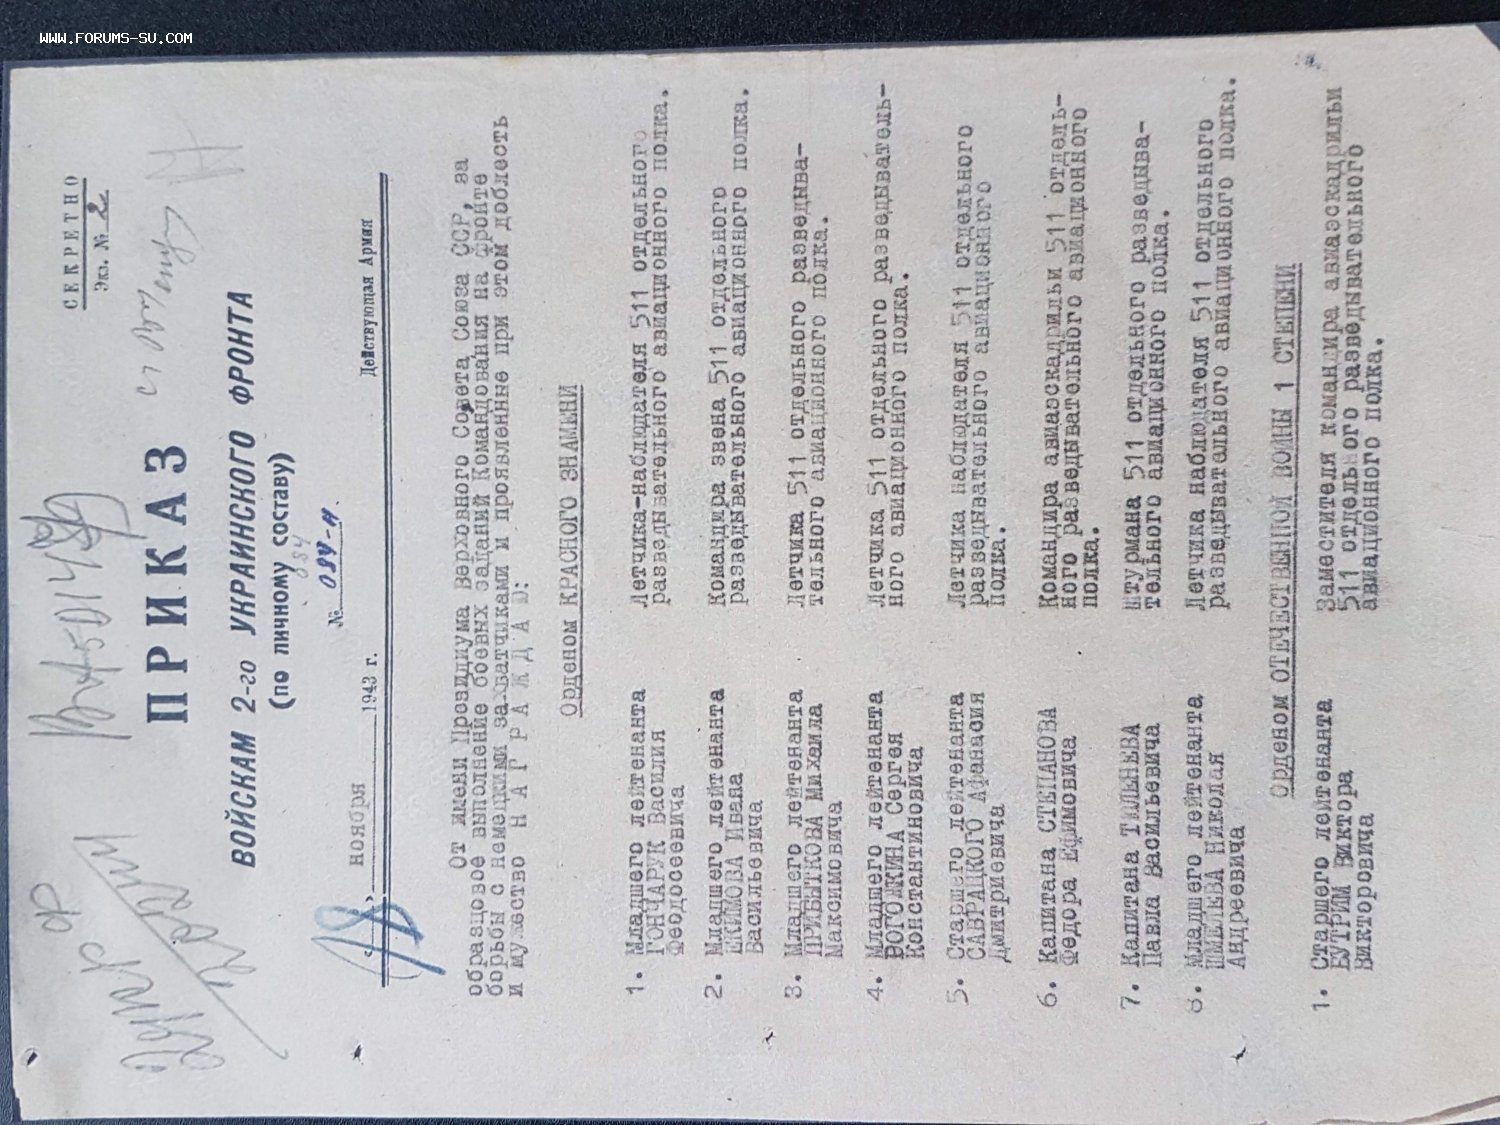 WWW.FORUMS-SU.COM
СЕКРЕТНО
Экз. № 2
ПРИКАЗ
ВОЙСКАМ 2-го УКРАИНСКОГО ФРОНТА
(по личному составу)
084
№ 084-н.
" " ноября 1943 г. Действующая Армия
От имени Президиума Верховного Совета Союза ССР, за
образцовое выполнение боевых заданий Командования на фронте
борьбы с немецкими захватчиками и проявленные при этом доблесть
и мужество Н А Г Р А Ж Д А Ю:
Орденом КРАСНОГО ЗНАМЕНИ
1. Младшего лейтенанта Летчика-наблюдателя 511 отдельного
ГОНЧАРУК Василия разведывательного авиационного полка.
Феодосеевича
2. Младшего лейтенанта Командира звена 511 отдельного
ЕКИМОВА Ивана разведывательного авиационного полка.
Васильевича
3. Младшего лейтенанта Летчика 511 отдельного разведыва-
ПРИБЫТКОВА Михаила тельного авиационного полка.
Максимовича
4. Младшего лейтенанта Летчика 511 отдельного разведыватель-
ВОГОЛКИНА Сергея ного авиационного полка.
Константиновича
5. Старшего лейтенанта Летчика наблюдателя 511 отдельного
САВРАЦКОГО Афанасия разведывательного авиационного
Дмитриевича полка.
6. Капитана СТЕПАНОВА Командира авиаэскадрильи 511 отдель-
Федора Ефимовича ного разведывательного авиационного
полка.
7. Капитана ТЮЛЕНЕВА Штурмана 511 отдельного разведыва-
Павла Васильевича тельного авиационного полка.
8. Младшего лейтенанта Летчика наблюдателя 511 отдельного
ШМЕЛЕВА Николая разведывательного авиационного полка.
Андреевича
Орденом ОТЕЧЕСТВЕННОЙ ВОЙНЫ 1 СТЕПЕНИ
1. Старшего лейтенанта Заместителя командира авиаэскадрильи
БУТРИМ Виктора 511 отдельного разведывательного
Викторовича авиационного полка.